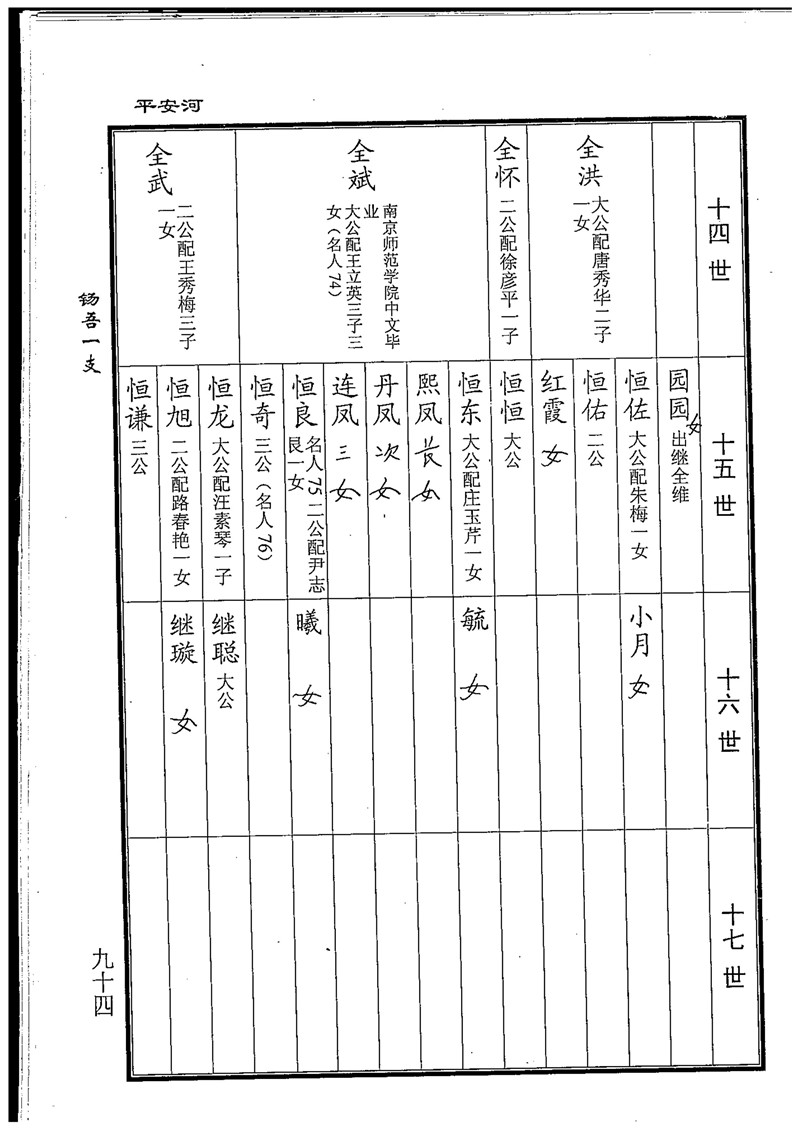 平安河
十四世
全洪
大公配唐秀华二子
一女
全怀
二公配徐彦平一子
全斌
南京师范学院中文毕
业
大公配王立英三子三
女（名人74）
全武
二公配王秀梅三子
一女
十五世
园园女
出继全维
恒佐
大公配朱梅一女
恒佑
二公
红霞 女
恒恒
大公
恒东
大公配庄玉芹一女
熙凤 长女
丹凤 次女
连凤 三女
恒良
名人75 二公配尹志
艮一女
恒奇
三公（名人76）
恒龙
大公配汪素琴一子
恒旭
二公配路春艳一女
恒谦
三公
十六世
小月 女
毓 女
曦 女
继聪
大公
继璇 女
十七世
钖吾一支
九十四